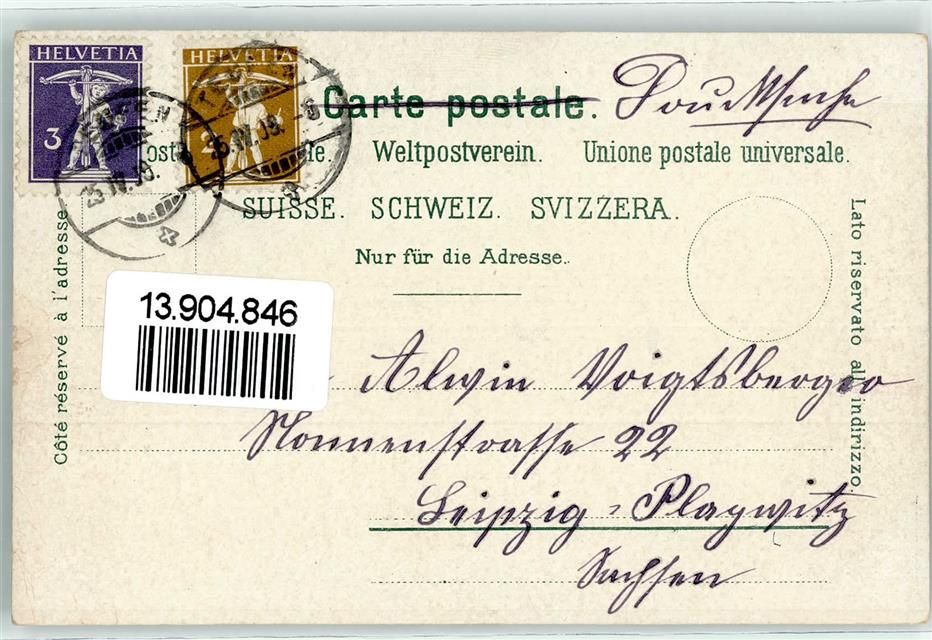 HELVETIA HELVETIA
3 2
Carte postale. Drucksache
Weltpostverein. Unione postale universale.
SUISSE. SCHWEIZ. SVIZZERA.
Nur für die Adresse.
Côté réservé à l'adresse
Lato riservato all indirizzo
13.904.846
Alwin Voigtsberger
Nonnenstrasse 22
Leipzig-Plagwitz
Sachsen